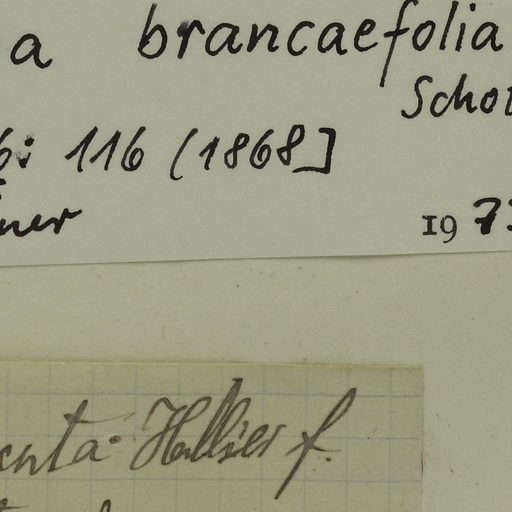 a brancaefolia
Schot
6: 116 (1868]
ner
19 73
enta Hallier f.